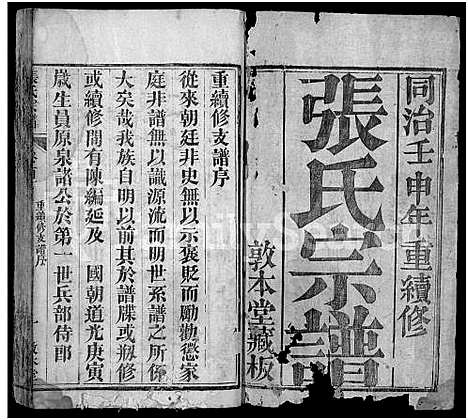 同治壬申年重續修
張氏宗譜
敦本堂藏板
重續修支譜序
從來朝廷非史無以示褒貶而勵勸懲家
庭非譜無以識源流而明世系譜之所係
大矣哉我族自明以前其於譜牒或病修
或續修間有陳編延及 國朝道光庚寅
歲生員原泉諸公於第一世兵部侍郎
重續修支譜序